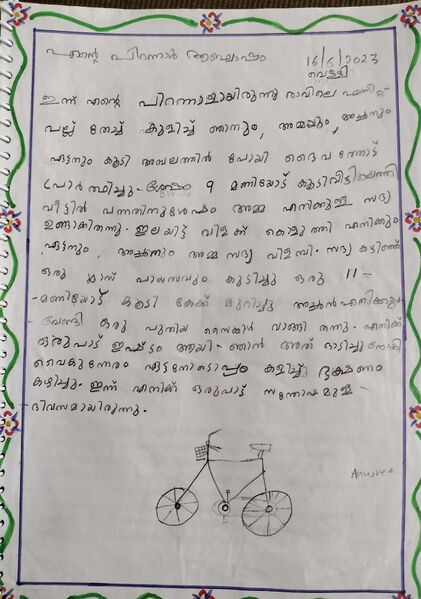 എന്റെ പിറന്നാൾ ആഘോഷം
16/6/2023
വെള്ളി
ഇന്ന് എന്റെ പിറന്നാളായിരുന്നു രാവിലെ എണീറ്റ്
പല്ല് തേച്ച് കുളിച്ച് ഞാനും, അമ്മയും, അച്ഛനും
ഏട്ടനും കൂടി അമ്പലത്തിൽ പോയി ദൈവത്തോട്
പ്രാർത്ഥിച്ചു. ശേഷം 9 മണിയോട് കൂടി വീട്ടിലെത്തി
വീട്ടിൽ വന്നതിനുശേഷം അമ്മ എനിക്കുള്ള സദ്യ
ഉണ്ടാക്കിതന്നു. ഇലയിട്ട് വിളക്ക് കൊളുത്തി എനിക്കും
ഏട്ടനും, അച്ഛനും അമ്മ സദ്യ വിളമ്പി. സദ്യ കഴിഞ്ഞ്
ഒരു ഗ്ലാസ് പായസവും കുടിച്ചു ഒരു 11
മണിയോട് കൂടി കേക്ക് മുറിച്ചു അച്ഛൻ എനിക്കു
വേണ്ടി ഒരു പുതിയ സൈക്കിൾ വാങ്ങി തന്നു. എനിക്ക്
ഒരുപാട് ഇഷ്ട്ടം ആയി. ഞാൻ അത് ഓടിച്ചു നോക്കി
വൈകുന്നേരം ഏട്ടനോടൊപ്പം കളിച്ചു, ഭക്ഷണം
കഴിച്ചും. ഇന്ന് എനിക്ക് ഒരുപാട് സന്തോഷമുള്ള
ദിവസമായിരുന്നു.
Anusree